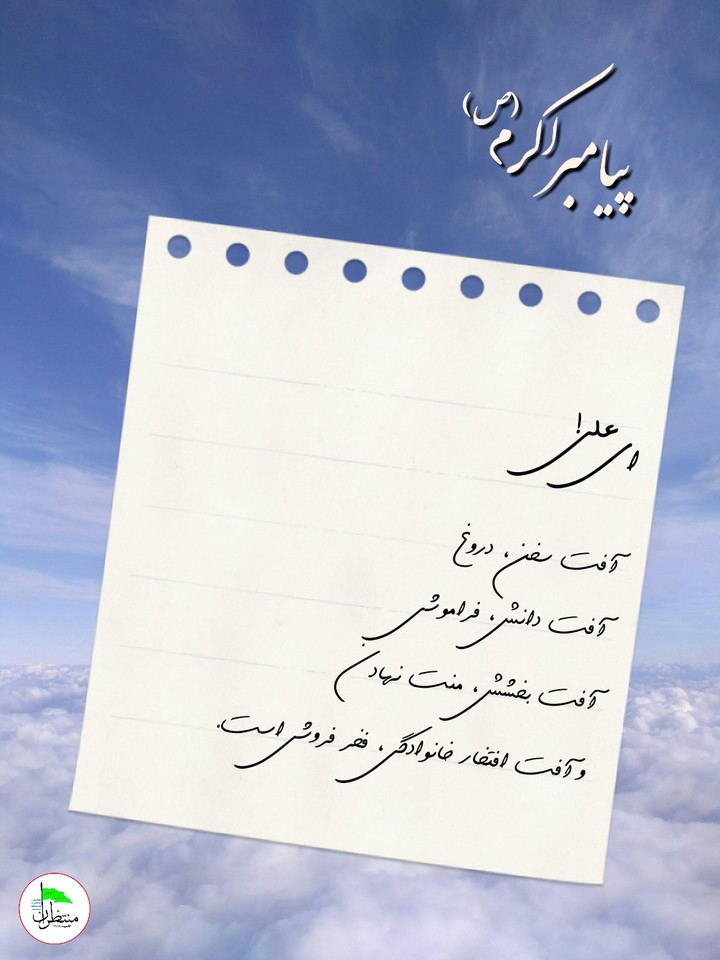 پیامبر اکرم (ص)
ای علی!
آفت سخن، دروغ
آفت دانش، فراموشی
آفت بخشش، منت نهادن
و آفت افتخار خانوادگی، فخر فروشی است.
منتظران